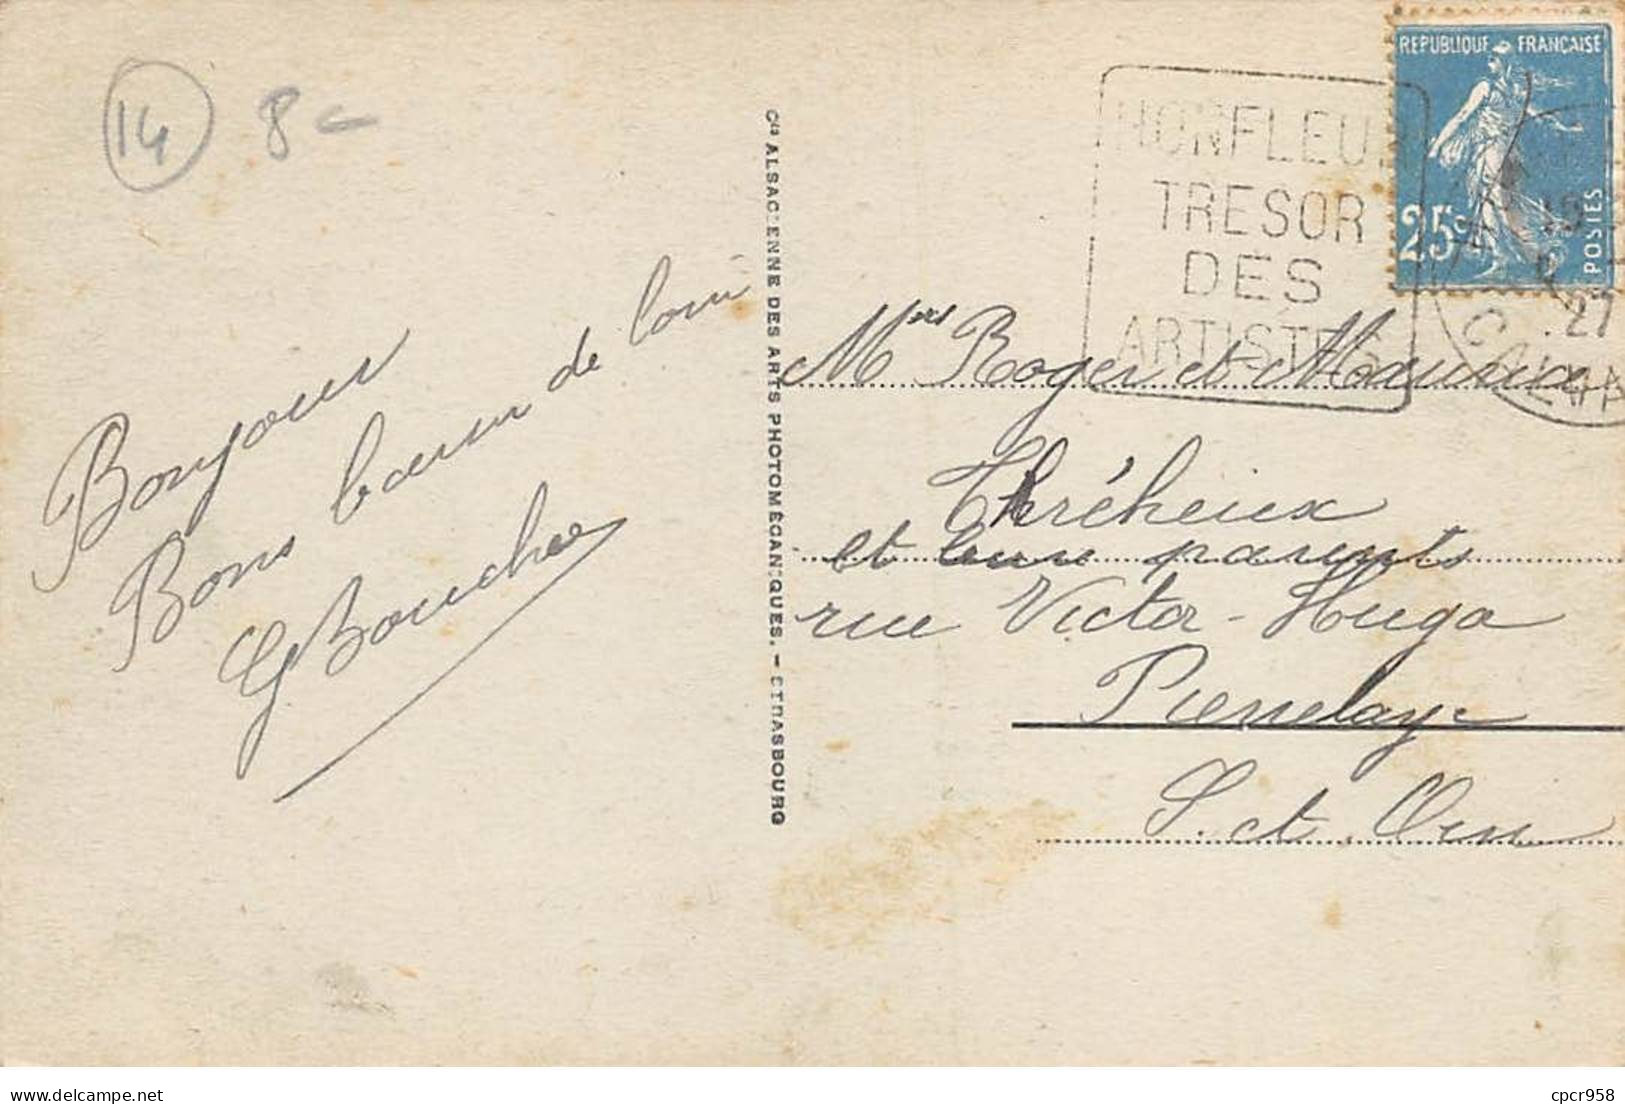 14 8
REPUBLIQUE FRANCAISE
25c POSTES
HONFLEUR
TRESOR
DES
ARTISTES
19
27
CALVA
Bonjour
Bons baisers de loin
GBouchee
Cie ALSACIENNE DES ARTS PHOTOMÉCANIQUES. - STRASBOURG
Mers Roger et Maurice
Thréheux
et leurs parents
rue Victor-Hugo
Pierrelaye
S. et Oise
cpcr958